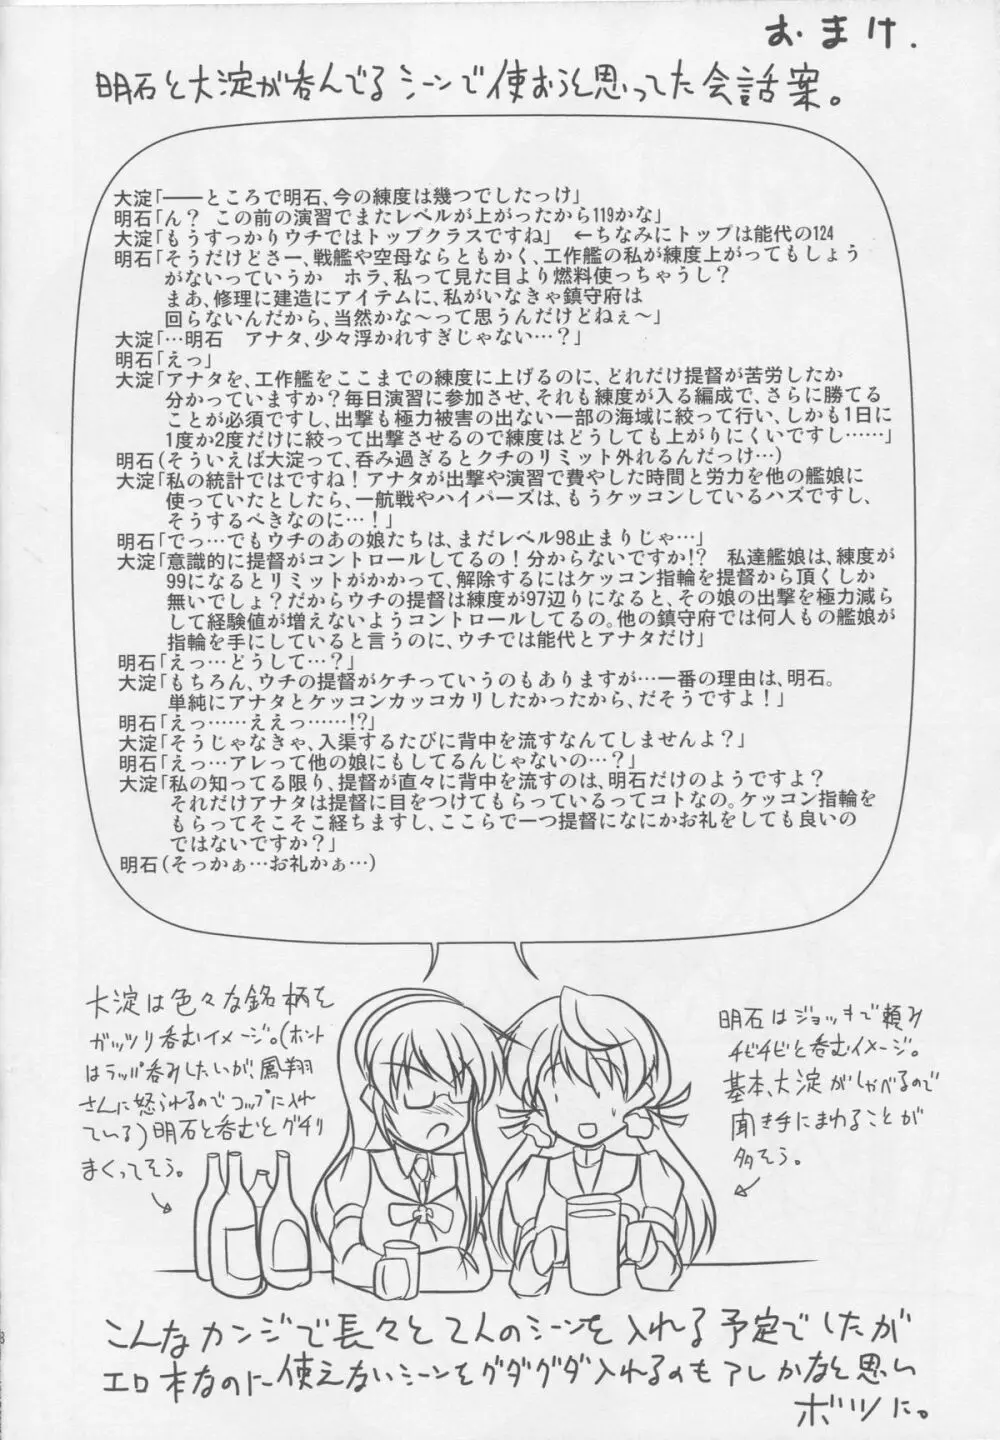 おまけ.
明石と大淀が呑んでるシーンで使おうと思ってた会話案。
大淀「――ところで明石、今の練度は幾つでしたっけ」
明石「ん？ この前の演習でまたレベルが上がったから119かな」
大淀「もうすっかりウチではトップクラスですね」 ←ちなみにトップは能代の124
明石「そうだけどさー、戦艦や空母ならともかく、工作艦の私が練度上がってもしょう
がないっていうか ホラ、私って見た目より燃料使っちゃうし？
まあ、修理に建造にアイテムに、私がいなきゃ鎮守府は
回らないんだから、当然かな～って思うんだけどねぇ～」
大淀「…明石 アナタ、少々浮かれすぎじゃない…？」
明石「えっ」
大淀「アナタを、工作艦をここまでの練度に上げるのに、どれだけ提督が苦労したか
分かっていますか？毎日演習に参加させ、それも練度が入る編成で、さらに勝てる
ことが必須ですし、出撃も極力被害の出ない一部の海域に絞って行い、しかも1日に
1度か2度だけに絞って出撃させるので練度はどうしても上がりにくいですし……」
明石（そういえば大淀って、呑み過ぎるとクチのリミット外れるんだっけ…）
大淀「私の統計ではですね！アナタが出撃や演習で費やした時間と労力を他の艦娘に
使っていたとしたら、一航戦やハイパーズは、もうケッコンしているハズですし、
そうするべきなのに…！」
明石「でっ…でもウチのあの娘たちは、まだレベル98止まりじゃ…」
大淀「意識的に提督がコントロールしてるの！分からないですか!？ 私達艦娘は、練度が
99になるとリミットがかかって、解除するにはケッコン指輪を提督から頂くしか
無いでしょ？だからウチの提督は練度が97辺りになると、その娘の出撃を極力減ら
して経験値が増えないようコントロールしてるの。他の鎮守府では何人もの艦娘が
指輪を手にしていると言うのに、ウチでは能代とアナタだけ」
明石「えっ…どうして…？」
大淀「もちろん、ウチの提督がケチっていうのもありますが…一番の理由は、明石。
単純にアナタとケッコンカッコカリしたかったから、だそうですよ！」
明石「えっ……ええっ……!?」
大淀「そうじゃなきゃ、入渠するたびに背中を流すなんてしませんよ？」
明石「えっ…アレって他の娘にもしてるんじゃないの…？」
大淀「私の知ってる限り、提督が直々に背中を流すのは、明石だけのようですよ？
それだけアナタは提督に目をつけてもらっているってコトなの。ケッコン指輪を
もらってそこそこ経ちますし、ここらで一つ提督になにかお礼をしても良いの
ではないですか？」
明石（そっかぁ…お礼かぁ…）
大淀は色々な銘柄を
ガッツリ呑むイメージ。(ホント
はラッパ呑みしたいが、鳳翔
さんに怒られるのでコップに入れ
ている)明石と呑むとグチり
まくってそう。
明石はジョッキで頼み
チビチビと呑むイメージ。
基本、大淀がしゃべるので
聞き手にまわることが
多そう。
こんなカンジで長々と2人のシーンを入れる予定でしたが
エロ本なのに使えないシーンをグダグダ入れるのもアレかなと思い
ボツに。